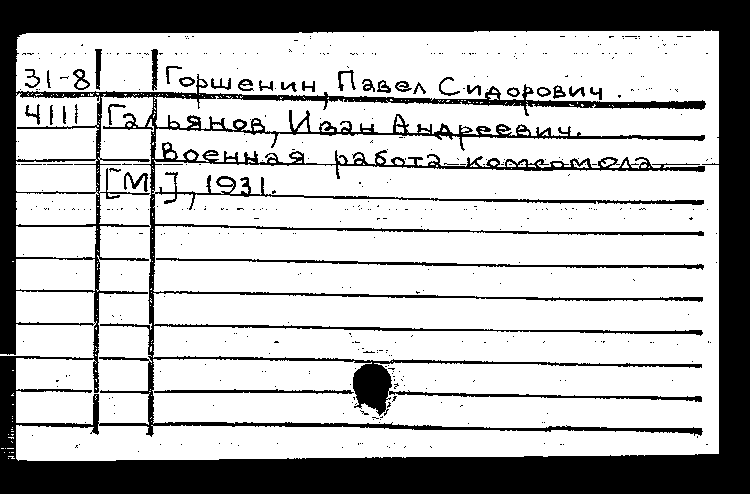 31-8 Горшенин, Павел Сидорович.
4111 Гальянов, Иван Андреевич.
Военная работа комсомола.
[М.], 1931.